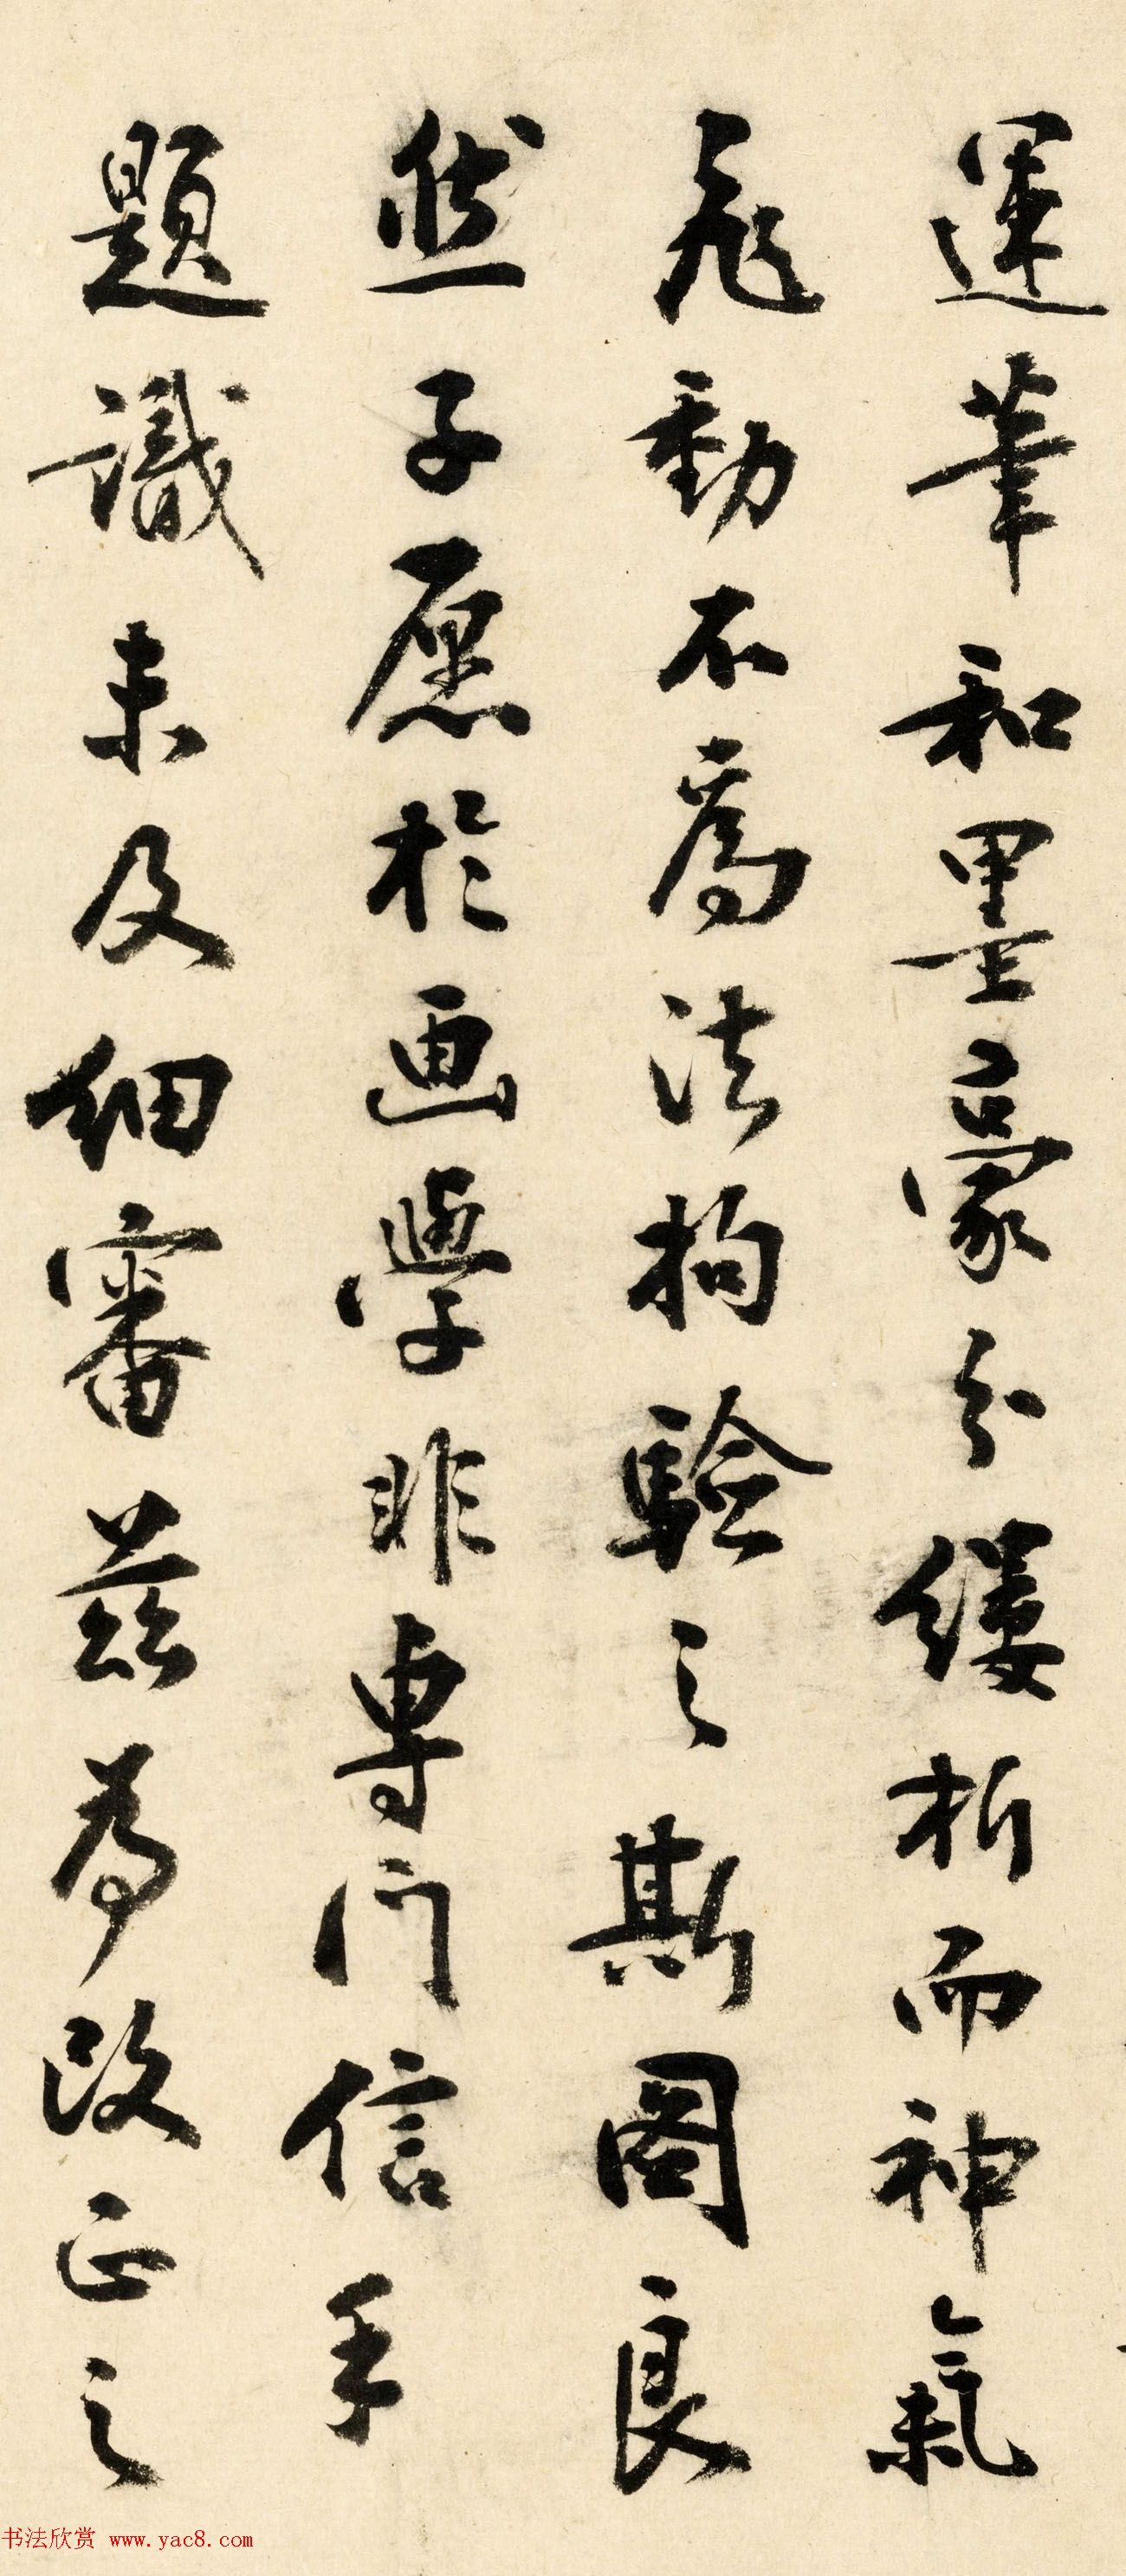 運筆和墨豪分縷析而神氣
飛動不為法拘驗之斯圖良
然子愿於画學非專門信手
題識未及細審茲為改正之
书法欣赏 www.yac8.com